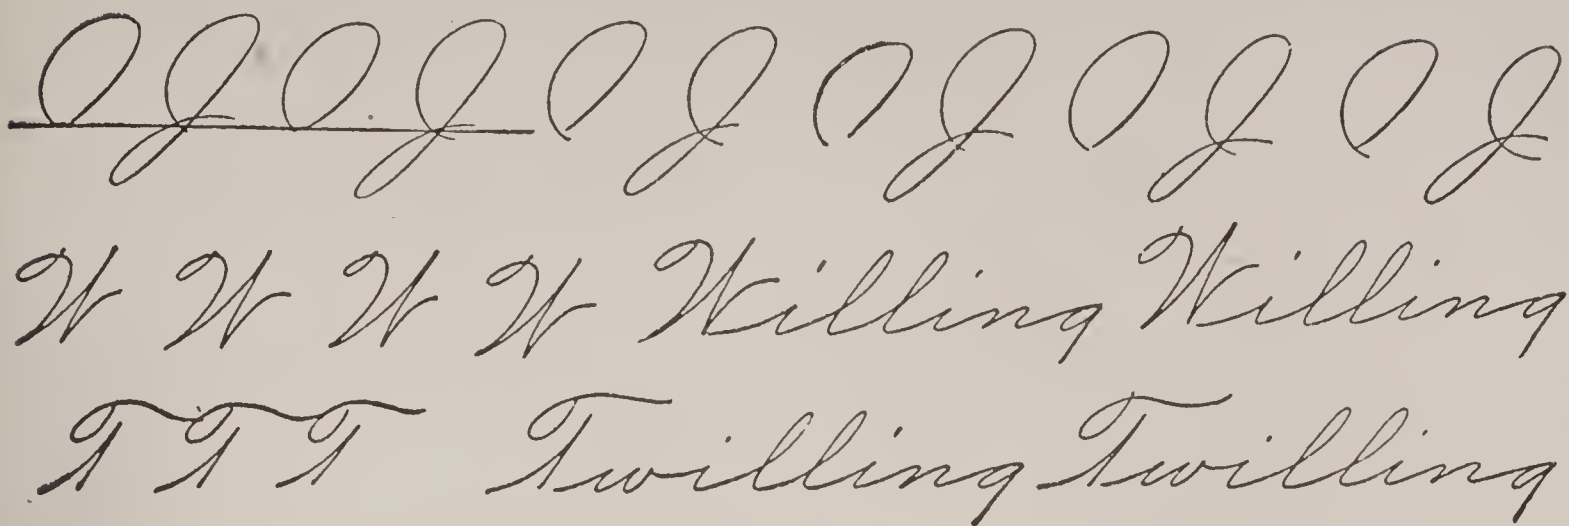 J J J J J J
W W W W Willing Willing
T T T Twilling Twilling